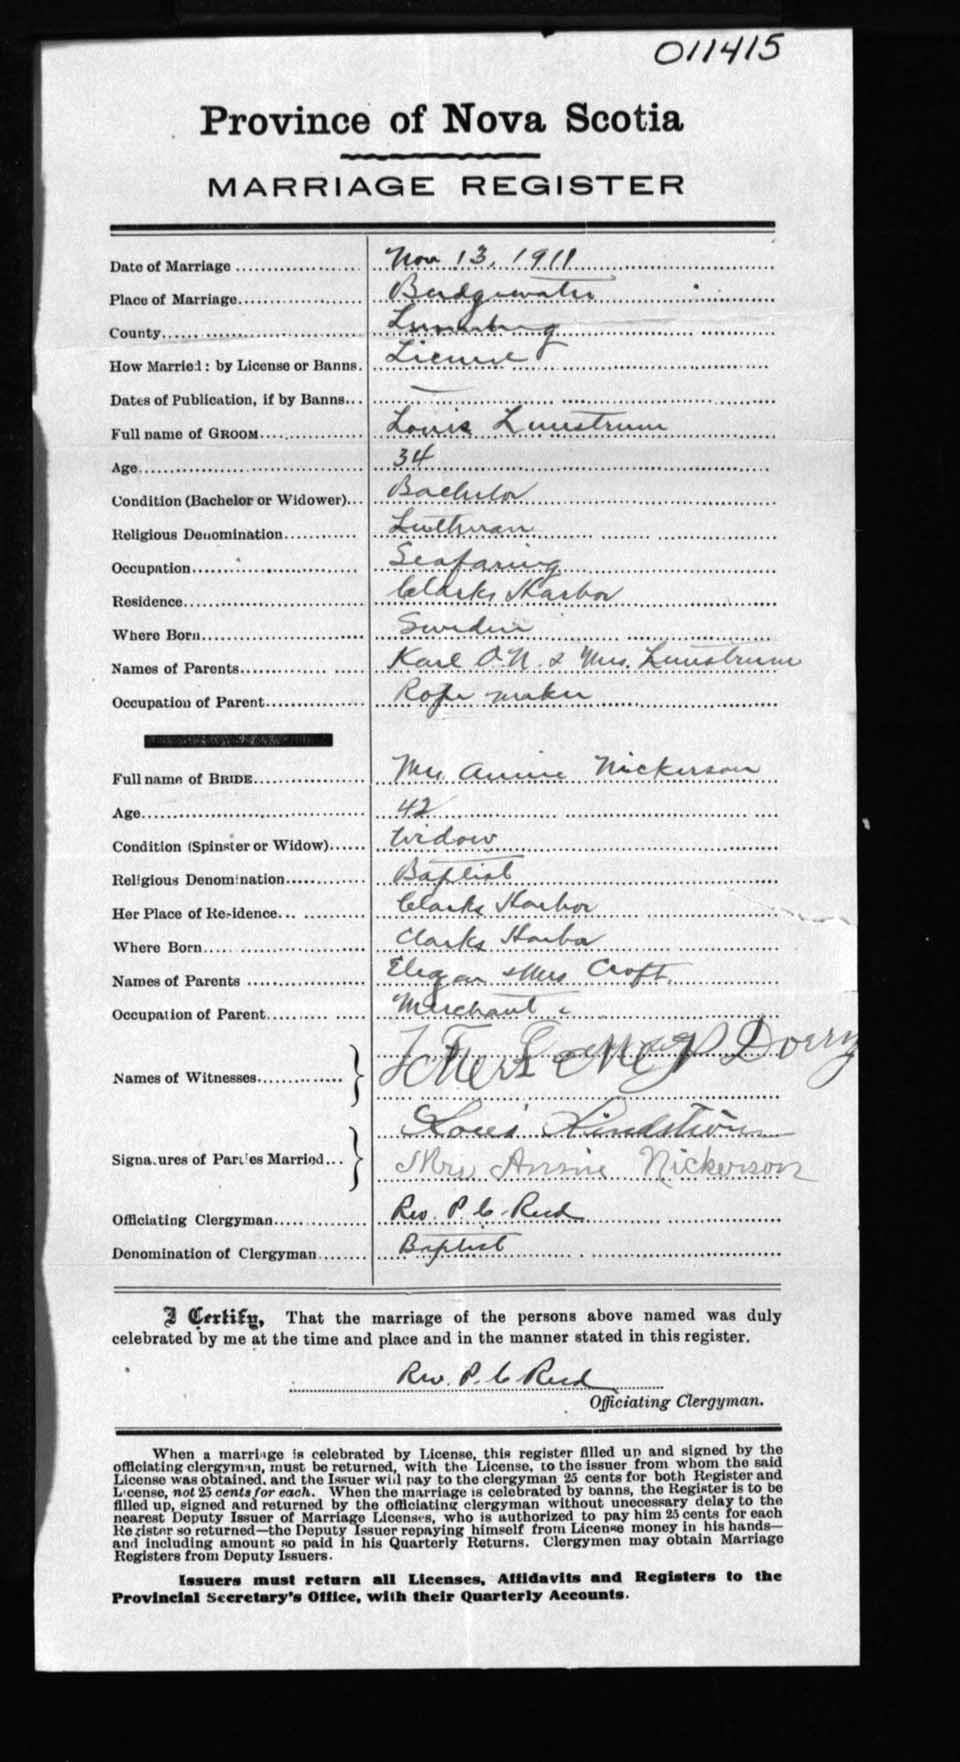 011415
Province of Nova Scotia
MARRIAGE REGISTER
Date of Marriage Nov 13, 1911
Place of Marriage Bridgewater
County Lunenburg
How Married: by License or Banns. License
Dates of Publication, if by Banns —
Full name of GROOM Louis Lunstrum
Age 34
Condition (Bachelor or Widower) Bachelor
Religious Denomination Lutheran
Occupation Seafaring
Residence Clarks Harbor
Where Born Sweden
Names of Parents Karl O.N. & Mrs. Lunstrum
Occupation of Parent Rope maker
Full name of BRIDE Mrs Annie Nickerson
Age 42
Condition (Spinster or Widow) Widow
Religious Denomination Baptist
Her Place of Residence Clarks Harbor
Where Born Clarks Harbor
Names of Parents & Mrs Croft.
Occupation of Parent Merchant
Names of Witnesses
Signatures of Parties Married Louis Lindström
Mrs Annie Nickerson
Officiating Clergyman Rev. P. C. Reed
Denomination of Clergyman Baptist
I Certify, That the marriage of the persons above named was duly
celebrated by me at the time and place and in the manner stated in this register.
Rev. P. C. Reed
Officiating Clergyman.
When a marriage is celebrated by License, this register filled up and signed by the
officiating clergyman, must be returned, with the License, to the issuer from whom the said
License was obtained, and the Issuer will pay to the clergyman 25 cents for both Register and
License, not 25 cents for each. When the marriage is celebrated by banns, the Register is to be
filled up, signed and returned by the officiating clergyman without unecessary delay to the
nearest Deputy Issuer of Marriage Licenses, who is authorized to pay him 25 cents for each
Register so returned—the Deputy Issuer repaying himself from License money in his hands—
and including amount so paid in his Quarterly Returns. Clergymen may obtain Marriage
Registers from Deputy Issuers.
Issuers must return all Licenses, Affidavits and Registers to the
Provincial Secretary's Office, with their Quarterly Accounts.